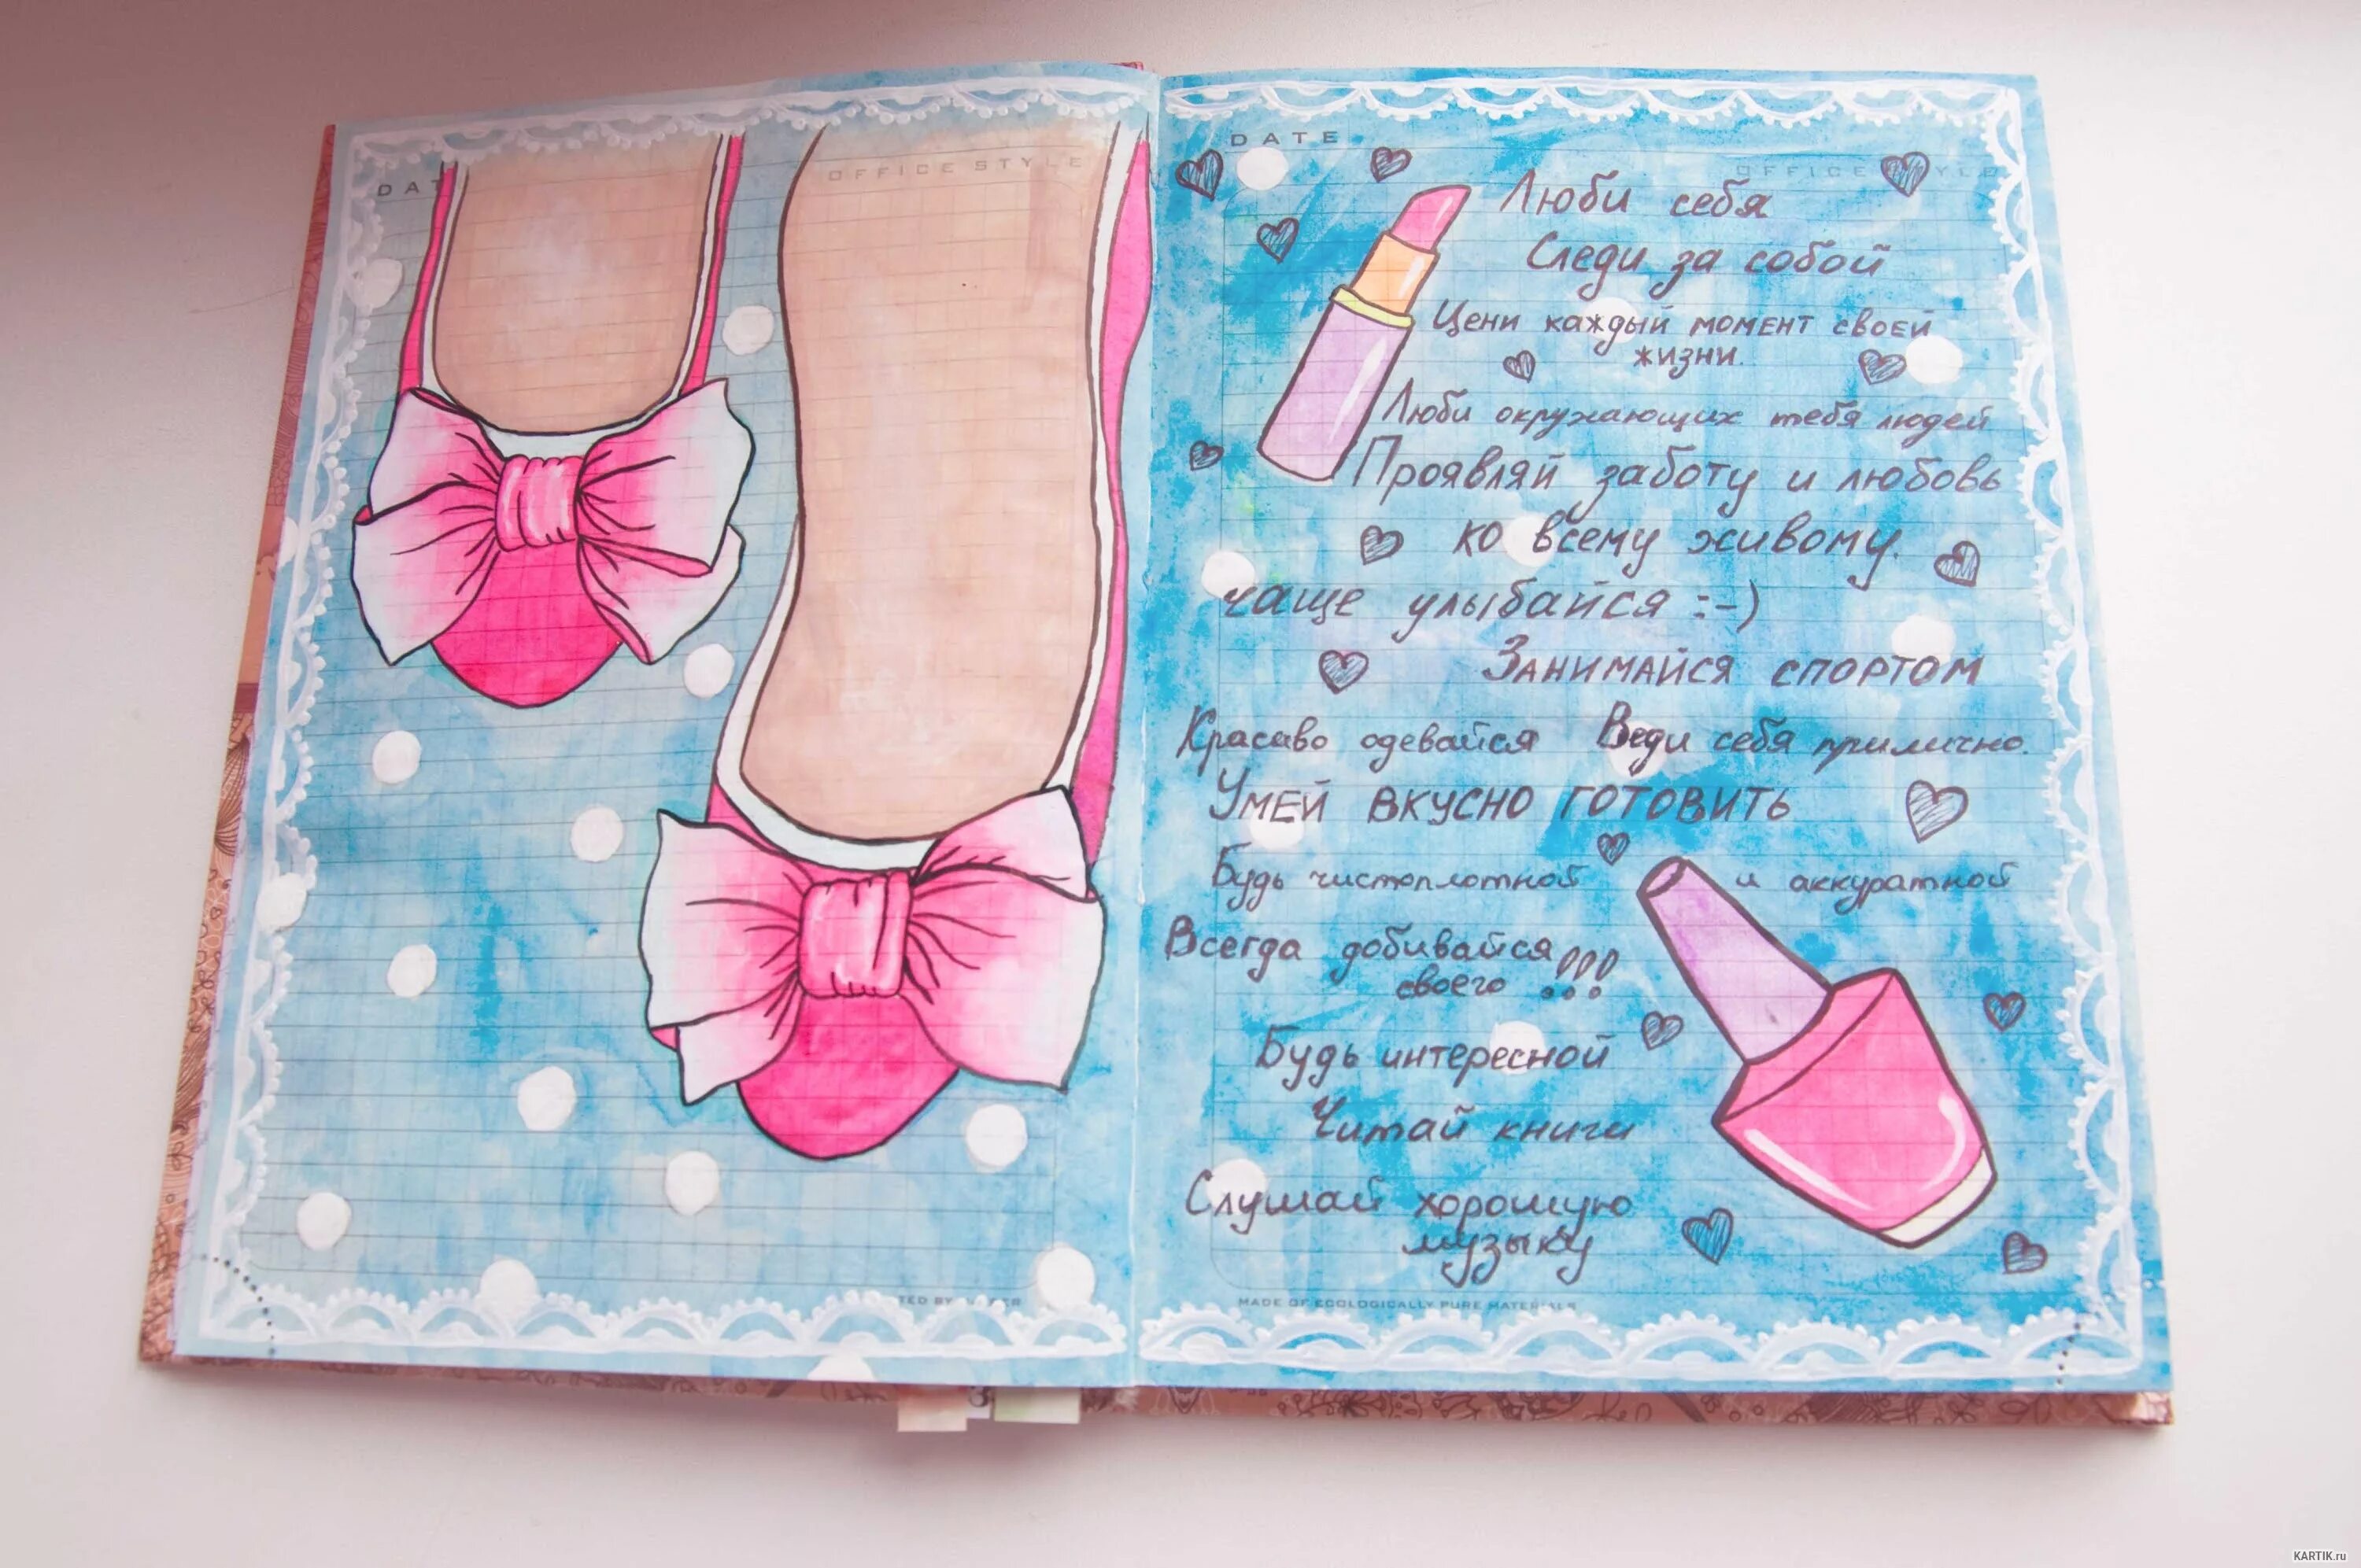 DAT
OFFICE STYLE
TED BY
DATE
OFFICE STYLE
Люби себя
Следи за собой
Цени каждый момент своей
жизни.
Люби окружающих тебя людей
Проявляй заботу и любовь
ко всему живому.
чаще улыбайся :-)
Занимайся спортом
Красиво одевайся Веди себя прилично.
Умей вкусно готовить
Будь чистоплотной и аккуратной
Всегда добивайся
своего !!!
Будь интересной
Читай книги
Слушай хорошую
музыку
MADE OF ECOLOGICALLY PURE MATERIALS
KARTIK.ru